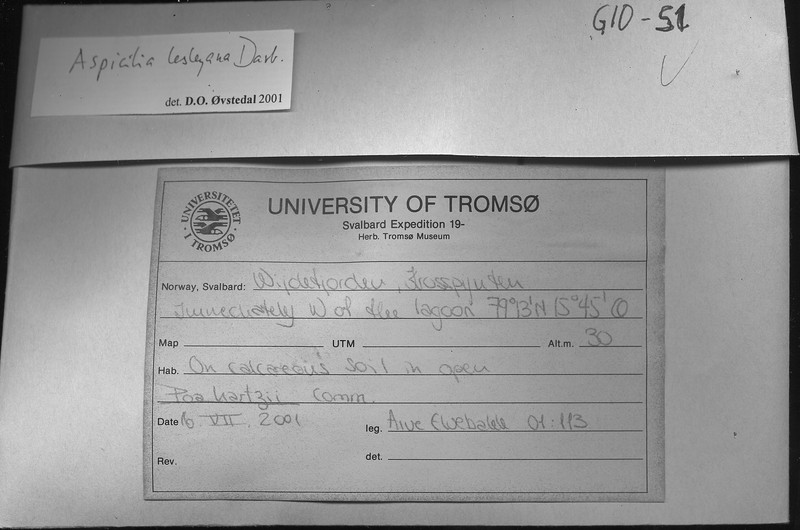 G10-51
Aspicilia lesleyana Darb.
det. D.O. Øvstedal 2001
UNIVERSITETET I TROMSØ
UNIVERSITY OF TROMSØ
Svalbard Expedition 19-
Herb. Tromsø Museum
Norway, Svalbard: Wijdefjorden,
immediately W of the lagoon 79°93'N 15°45' Ø
Map UTM Alt.m. 30
Hab. On calcareous soil in open
Poa hartzii comm.
Date 16 VII. 2001 leg. Arve Elvebakk 01:113
Rev. det.